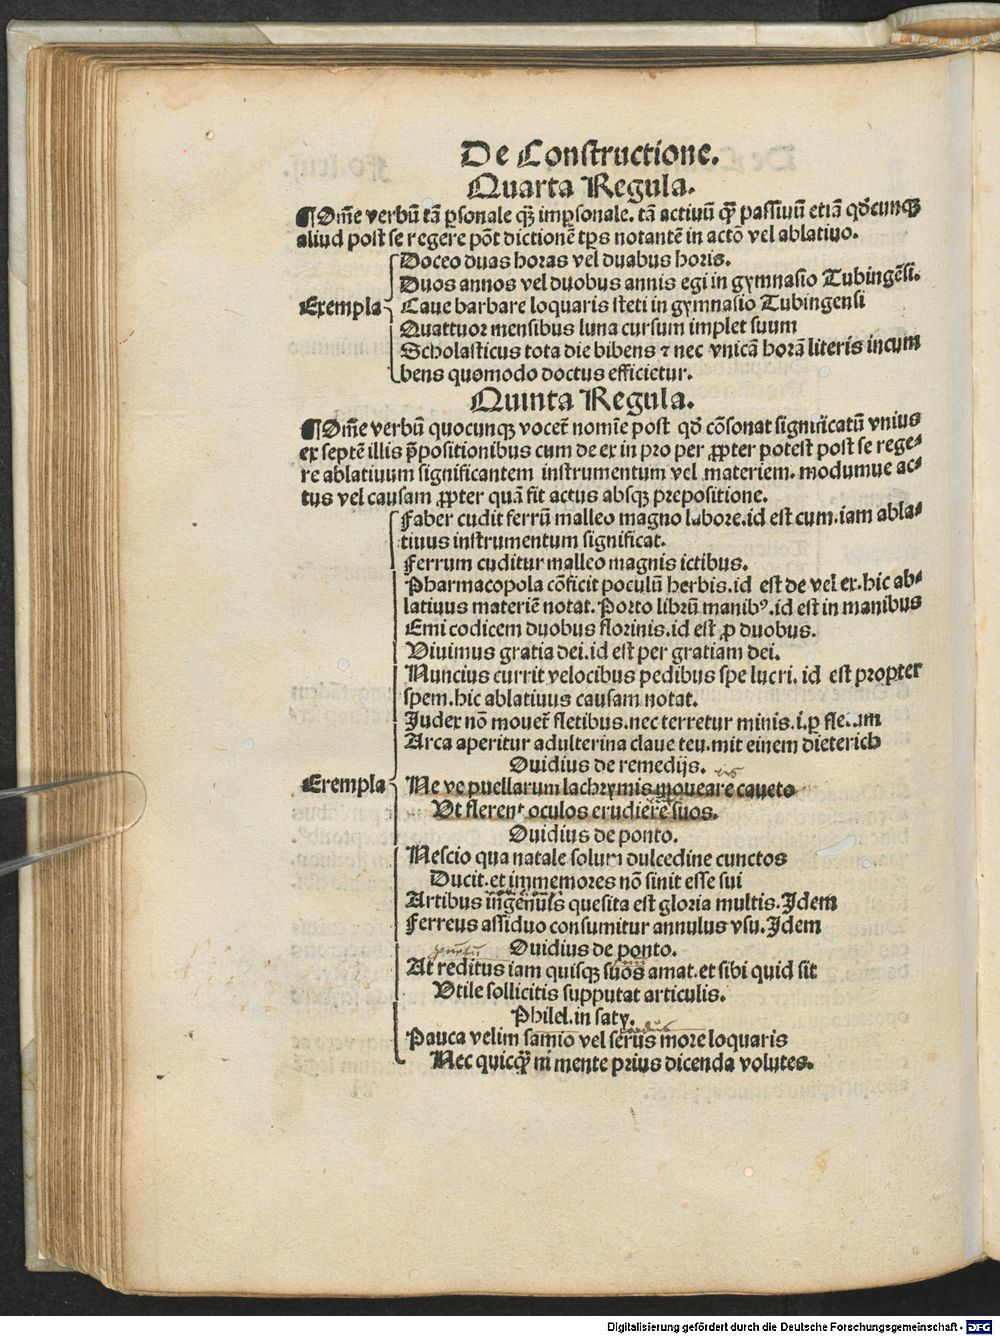 De Constructione.
Quarta Regula.
¶Om̄e verbū tā p̲sonale q̈ꝫ imp̲sonale. tā actiuū q̈ꝫ passiuū etiā qd̕cunqꝫ
aliud post se regere pōt dictionē tp̄s notantē in actō vel ablatiuo.
Doceo duas horas vel duabus horis.
Duos annos vel duobus annis egi in gymnasio Tubingēsi.
Exempla Caue barbare loquaris steti in gymnasio Tubingensi
Quattuor mensibus luna cursum implet suum
Scholasticus tota die bibens ⁊ nec vnicā horā literis incum
bens quomodo doctus efficietur.
Quinta Regula.
¶Om̄e verbū quocunqꝫ vocet̄ nomīe post qd̕ cōsonat significatū vnius
ex septē illis p̄positionibus cum de ex in pro per ꝓpter potest post se rege⸗
re ablatiuum significantem instrumentum vel materiem. modumue ac⸗
tus vel causam ꝓpter quā fit actus absqꝫ prepositione.
Faber cudit ferrū malleo magno labore. id est cum. iam abla⸗
tiuus instrumentum significat.
Ferrum cuditur malleo magnis ictibus.
Pharmacopola cōficit poculū herbis. id est de vel ex. hic ab⸗
latiuus materiē notat. Porto librū manibꝰ. id est in manibus
Emi codicem duobus florinis. id est ꝓ duobus.
Viuimus gratia dei. id est per gratiam dei.
Nuncius currit velocibus pedibus spe lucri. id est propter
spem. hic ablatiuus causam notat.
Judex nō mouet̄ fletibus. nec terretur minis. i. ꝑ fletum
Arca aperitur adulterina claue teu. mit einem dieterich
Ouidius de remedijs.
Exempla Ne ve puellarum lachrymis moueare caueto
Vt flerent oculos erudiere suos.
Ouidius de ponto.
Nescio qua natale solum dulcedine cunctos
Ducit. et immemores nō sinit esse sui
Artibus ingenuis quesita est gloria multis. Idem
Ferreus assiduo consumitur annulus vsu. Idem
Ouidius de ponto.
At reditus iam quisqꝫ suos amat. et sibi quid sit
Vtile sollicitis supputat articulis.
Philel. in saty.
Pauca velim samio vel serus more loquaris
Nec quicq̈ꝫ ni mente prius dicenda volutes.
Digitalisierung gefördert durch die Deutsche Forschungsgemeinschaft - DFG